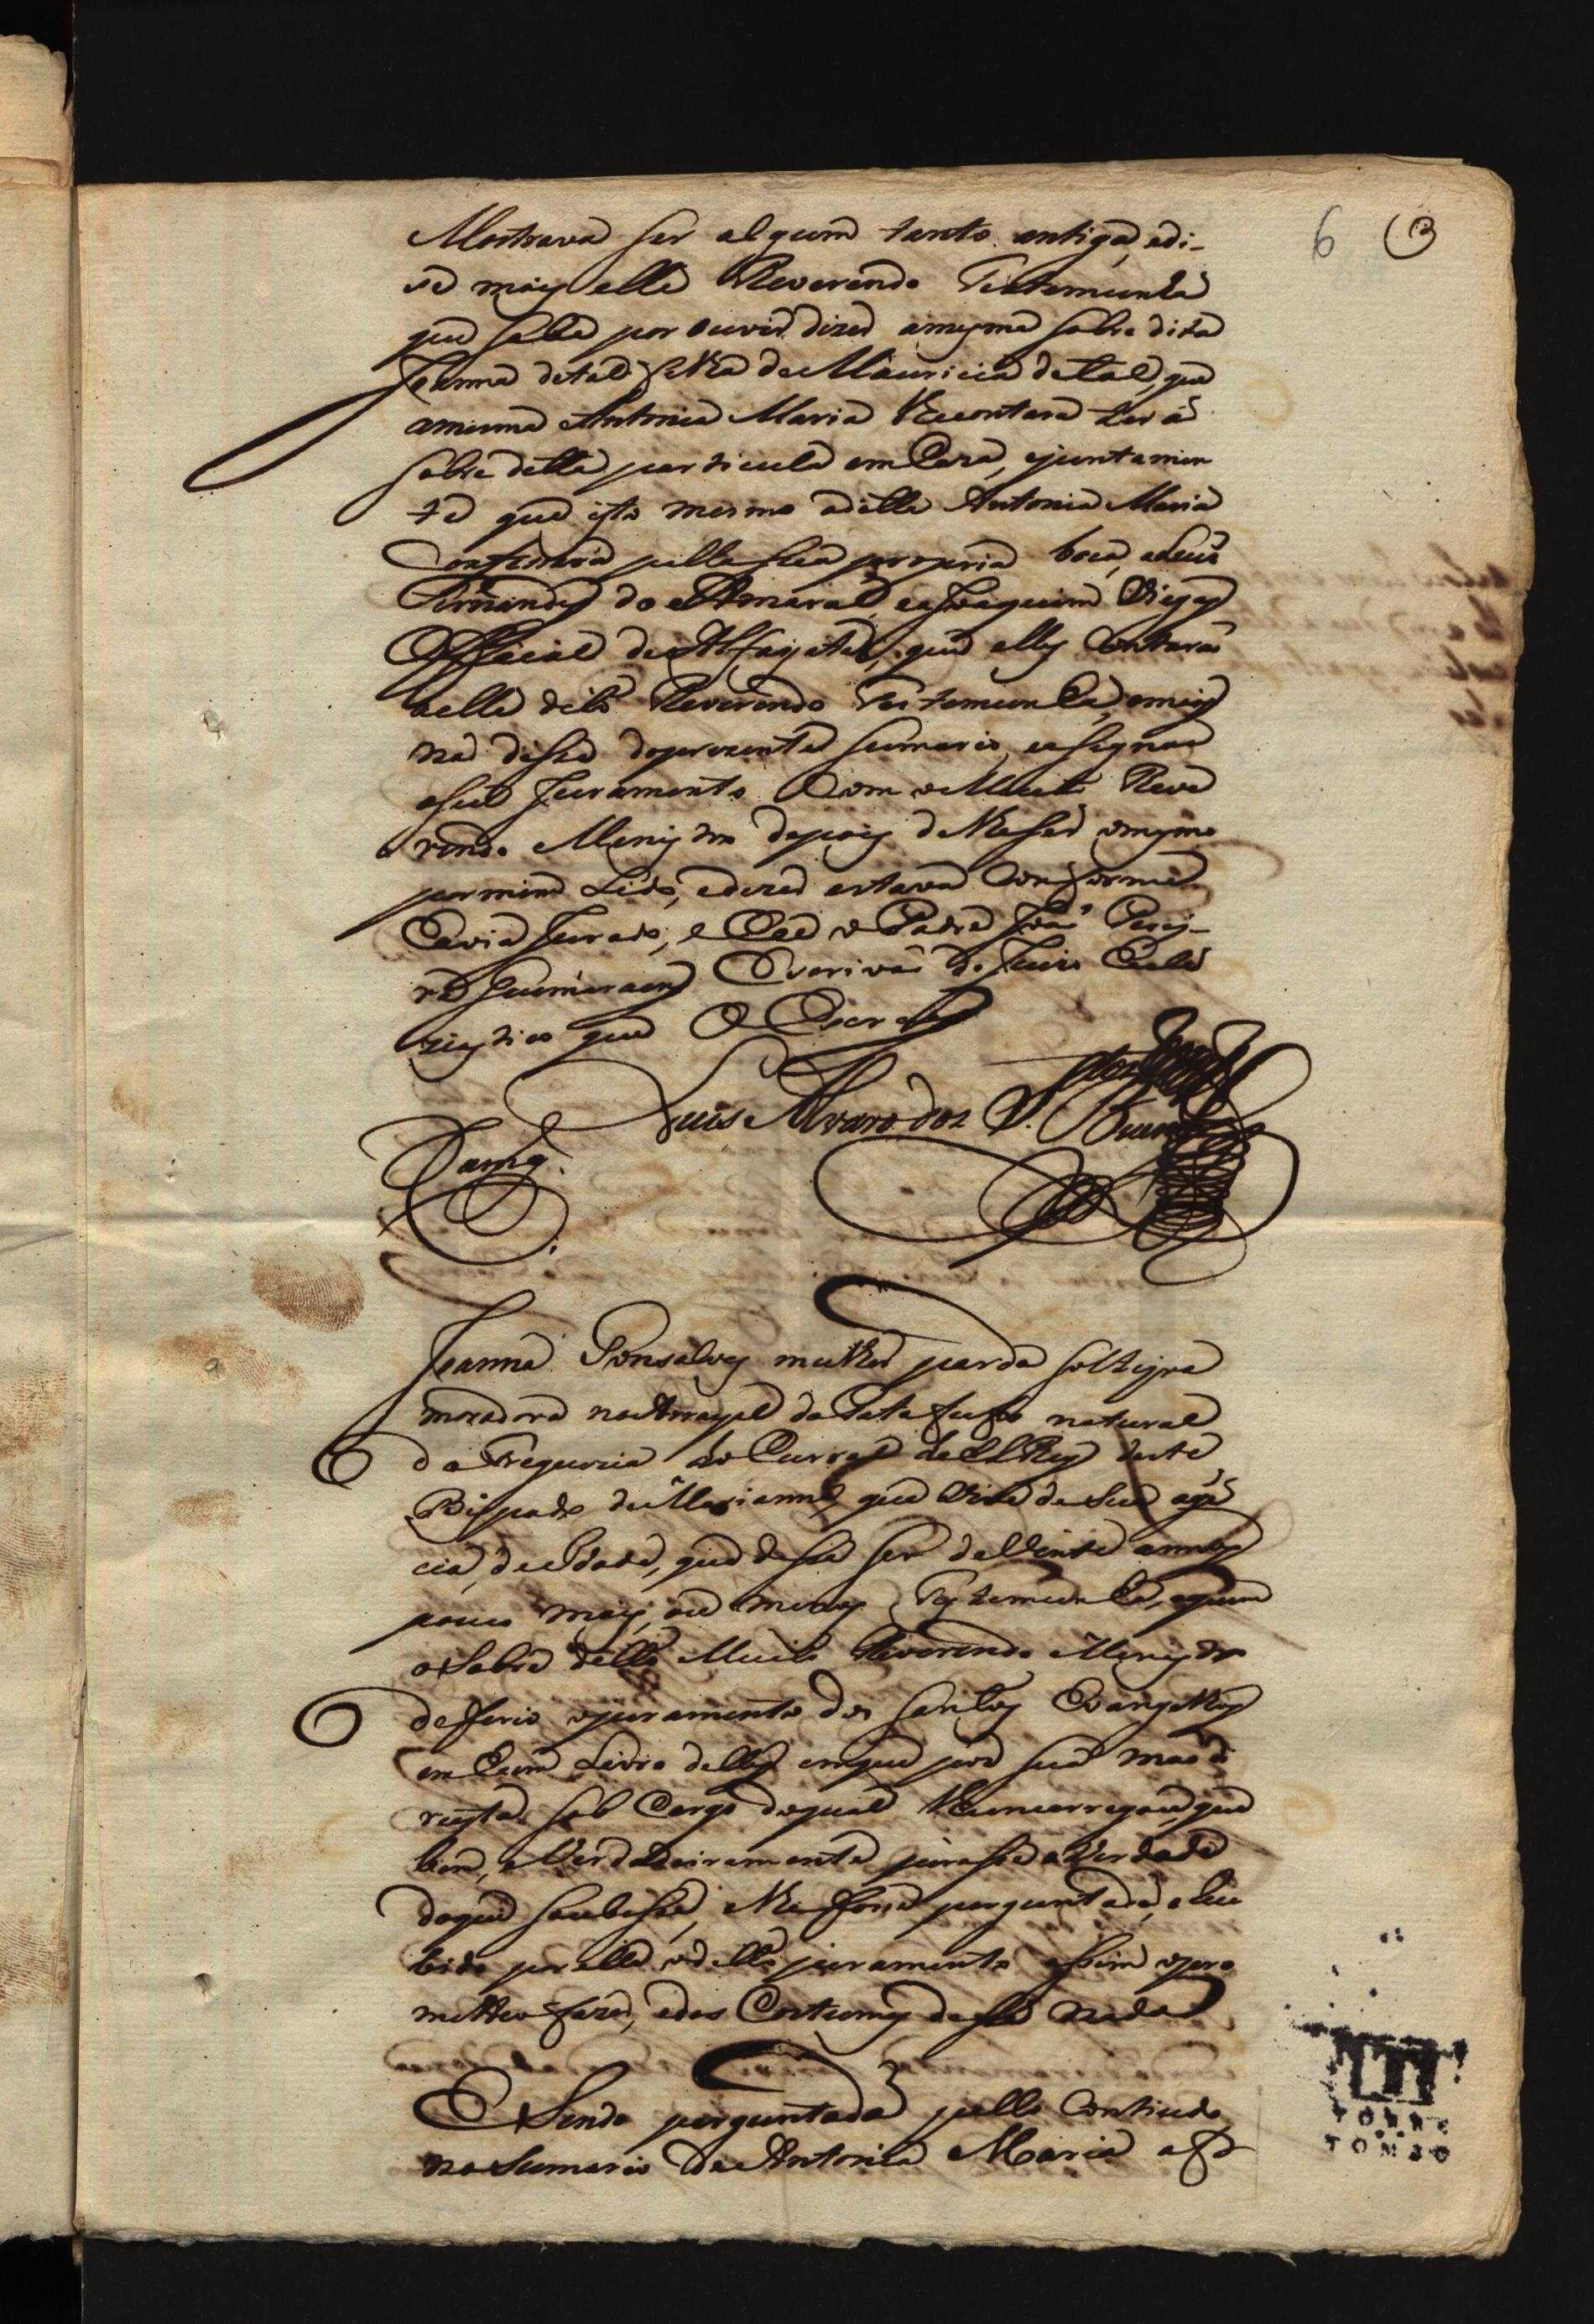 6 (3)
Mostrava ser algum tanto antiga, edi-
se mais elle Reverendo Testemunha
que sabe por ouvir dizer amesma sobre dita
Joanna detal filha de Mauricia detal, que
amesma Antonia Maria lhe contara ter a
sobre ditta particula em Caza, ejuntamen
te que isto mesmo aditta Antonia Maria
Confessara pella sua propria boca, a Luis
Fernandes do Amaral, ea Joaquim Viegas
Official de Alfayate, que elles Contarão
aelle dito Reverendo Testemunha, emais
não disse doprezente sumario, easignou
oseu Juramento Com o Muito Reve
rendo Menistro depois de lhe ser omesmo
por mim Lido, edizer estava Conforme
havia Jurado, e Eu o Padre João Perey-
ra Guimaraens Escrivão do Juizo Ecclez
ziastico que o Escrevy
Luis Alvares dos
Joanna Gonsalves mulher parda solteyra
moradora no Arrayal da Tatafufo natural
da Freguezia do Curral de El Rey deste
Bispado de Marianna, que vive de sua agen
cia, de Idade, que disse ser de Vinte annos
pouco mais, ou menos Testemunha, aquem
o sobre ditto Muito Reverendo Menistro
defferio ojuramento dos santos Evangelhos
em hum Livro delles emque pos sua mão di
reyta sob Cargo doqual lhe encarregou, que
bem, e Verdadeiramente jurasse a Verdade
doque soubesse, elhe fosse perguntado, e rece
bido por ella odito juramento assim opro
metteo fazer, edos Costumes disse nada
E Sendo perguntada pello Contiudo
no Sumario de Antonia Maria
TORRE
TOMBO